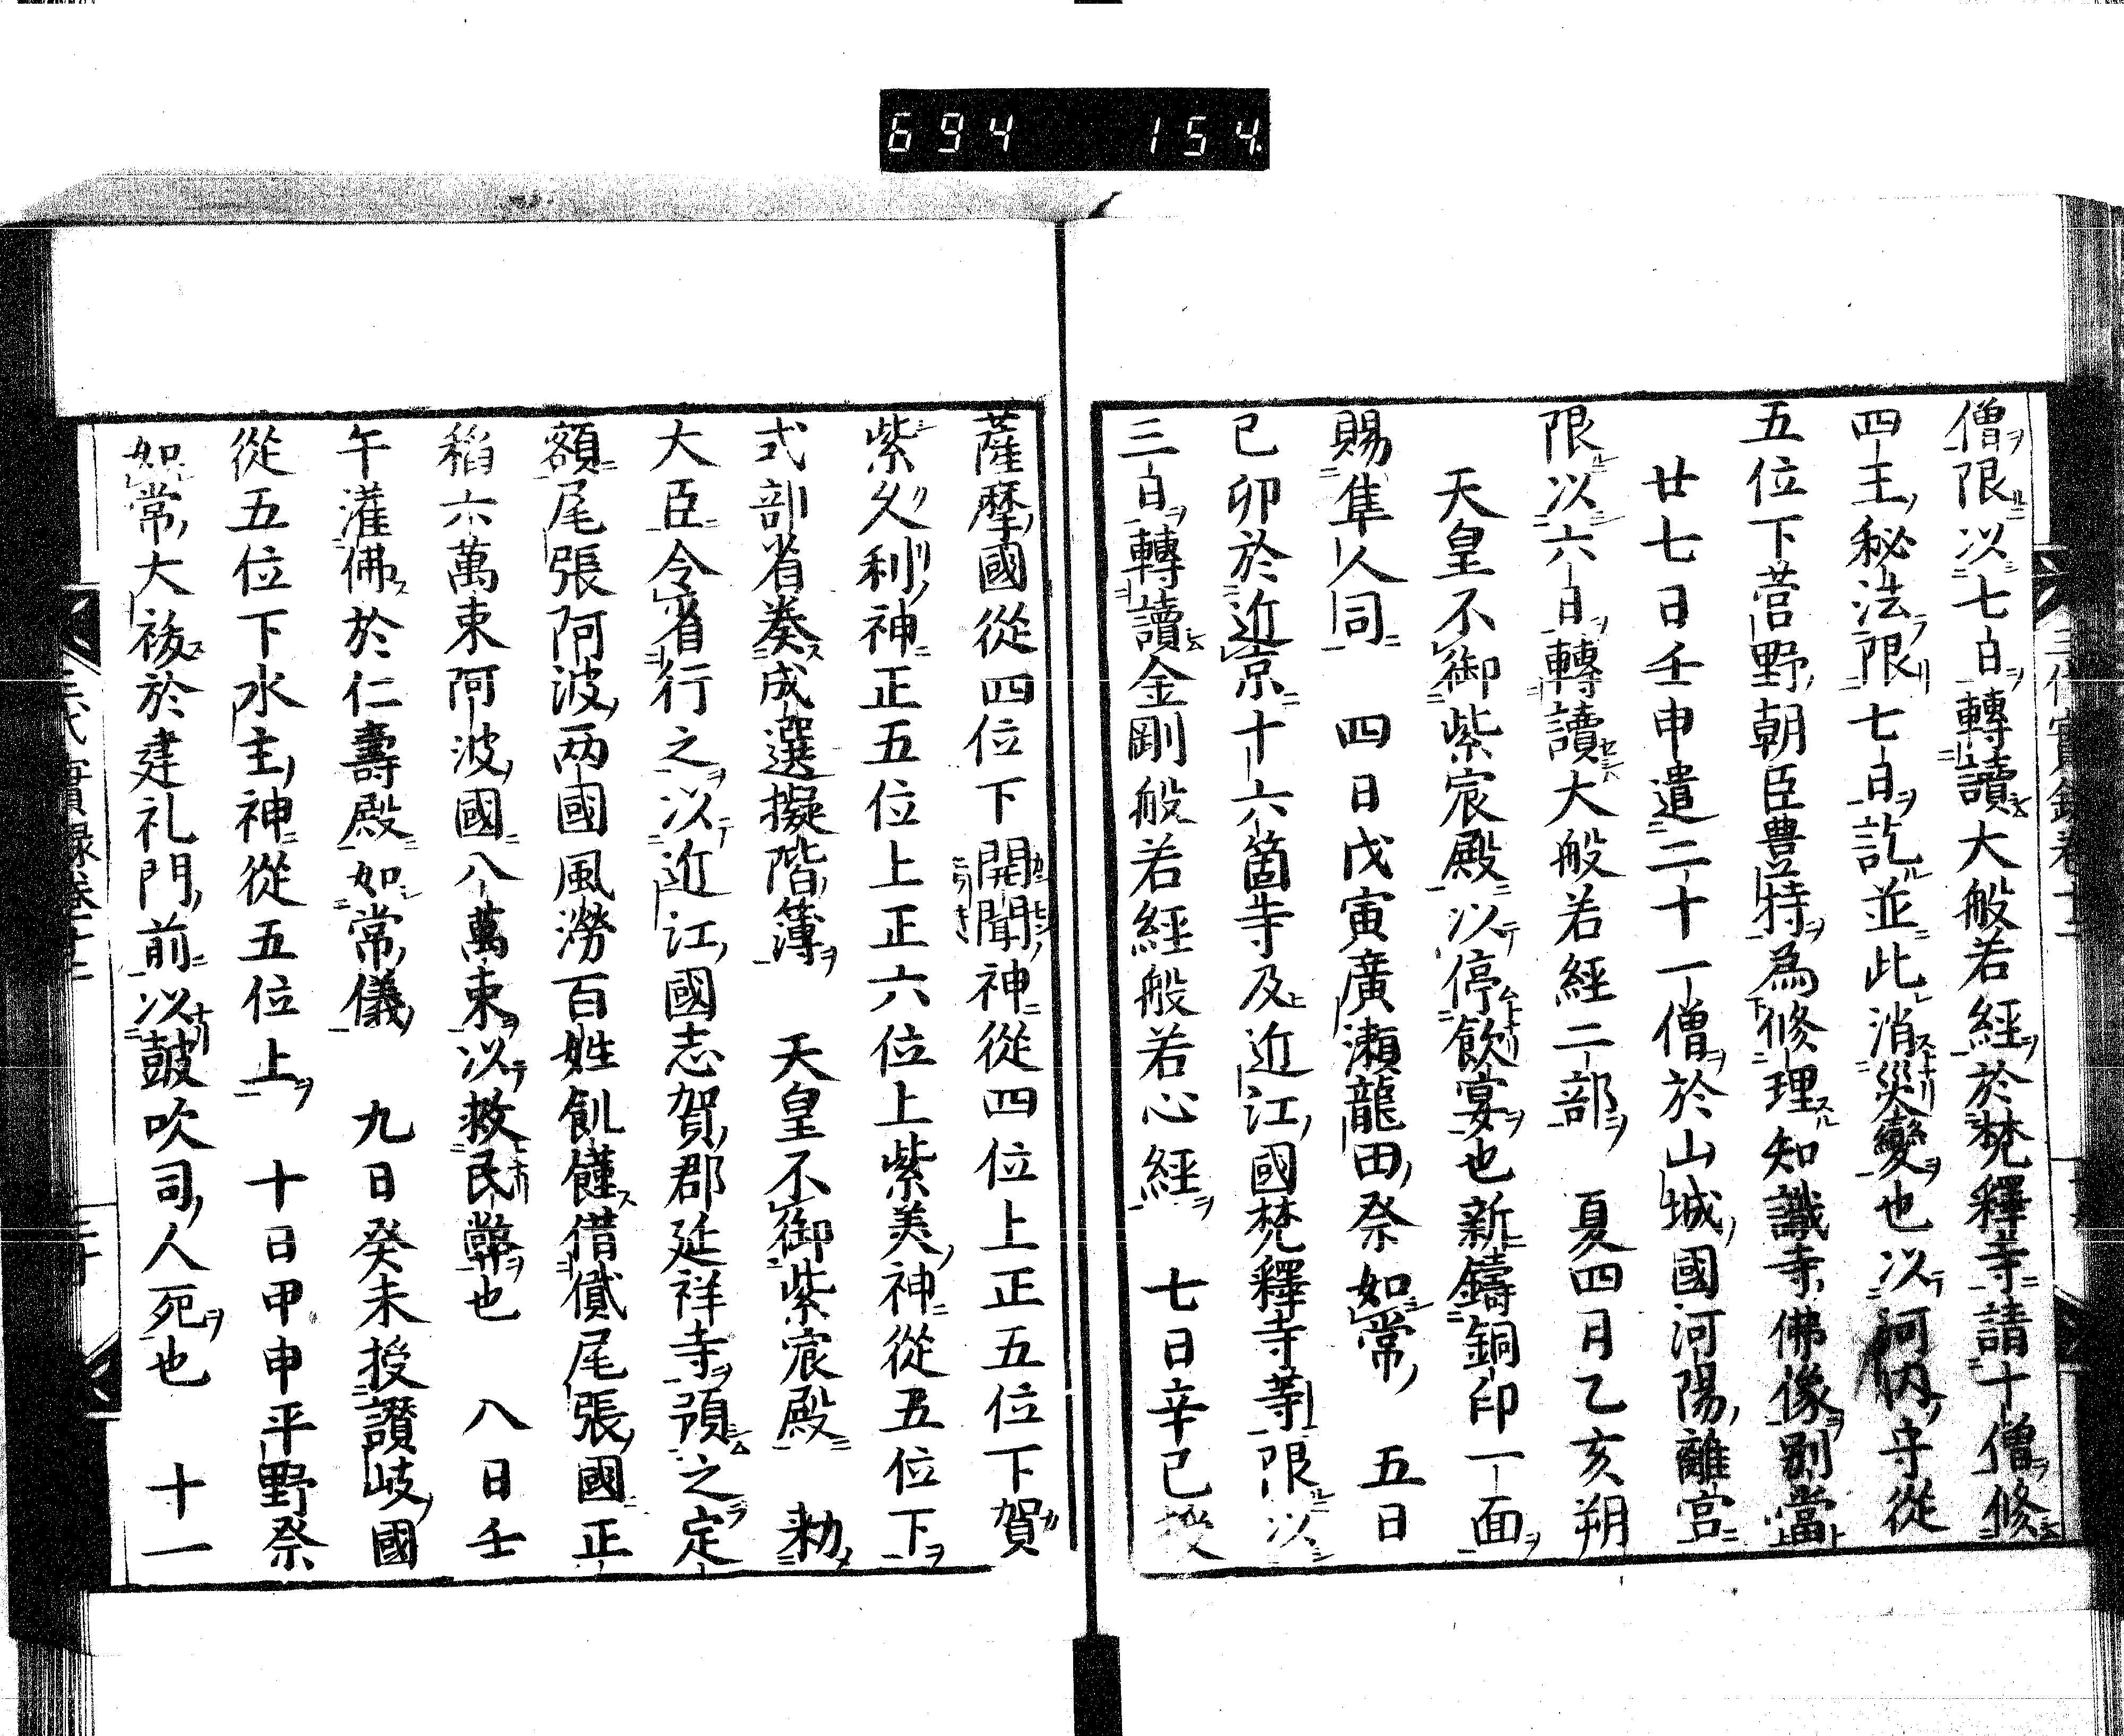 694 154.
僧限以七日轉讀大般若經於梵釋寺請十僧修
四王秘法限七日訖並此消災變也以河內守從
五位下菅野朝臣豊持為修理知識寺佛像別當
廿七日壬申遣二十一僧於山城國河陽離宮
限以六日轉讀大般若經二部　夏四月乙亥朔
天皇不御紫宸殿以停飲宴也新鑄銅印一面
賜隼人司　四日戊寅廣瀬龍田祭如常　五日
己卯於近京十六箇寺及近江國梵釋寺等限以
三日轉讀金剛般若經般若心經　七日辛巳授
薩摩國從四位下開聞神從四位上正五位下賀
紫久利神正五位上正六位上紫美神從五位下
式部省奏成選擬階簿　天皇不御紫宸殿　勅
大臣令省行之以近江國志賀郡延祥寺預之定
額尾張阿波两國風澇百姓飢饉借貸尾張國正
稲六萬束阿波國八萬束以救民弊也　八日壬
午灌佛於仁壽殿如常儀　九日癸未授讃岐國
從五位下水主神從五位上　十日甲申平野祭
如常大祓於建礼門前以鼓吹司人死也　十一